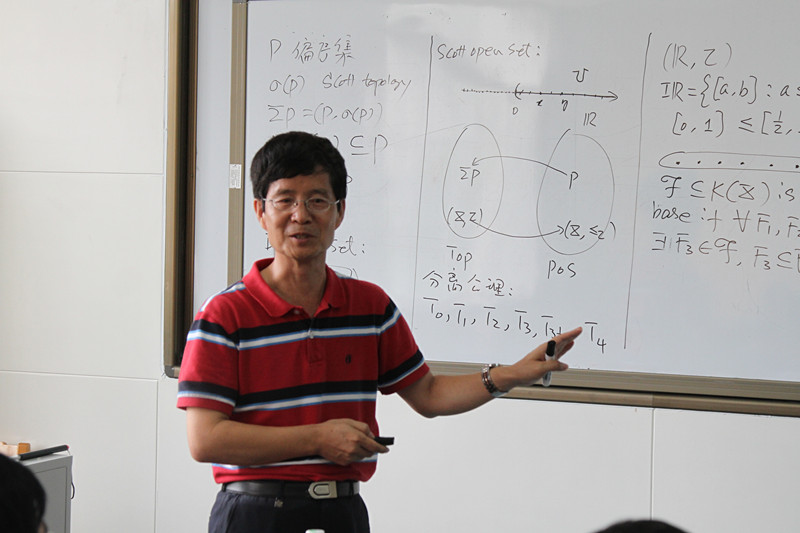 P 偏序集
σ(p) Scott topology
ΣP = (P, σ(p))
⊆ P
Set:
Scott open Set:
U
0 x y
ℝ
ΣP
P
(X,τ)
(X, ≤τ)
Top
Pos
分离公理:
T0, T1, T2, T3, T3½ T4
(ℝ, τ)
Iℝ={[a,b]: a≤
[0,1] ≤ [½,
ℱ ⊆ K(X) is
base: ∀F1, F2
∃F3∈ℱ, F3⊆F